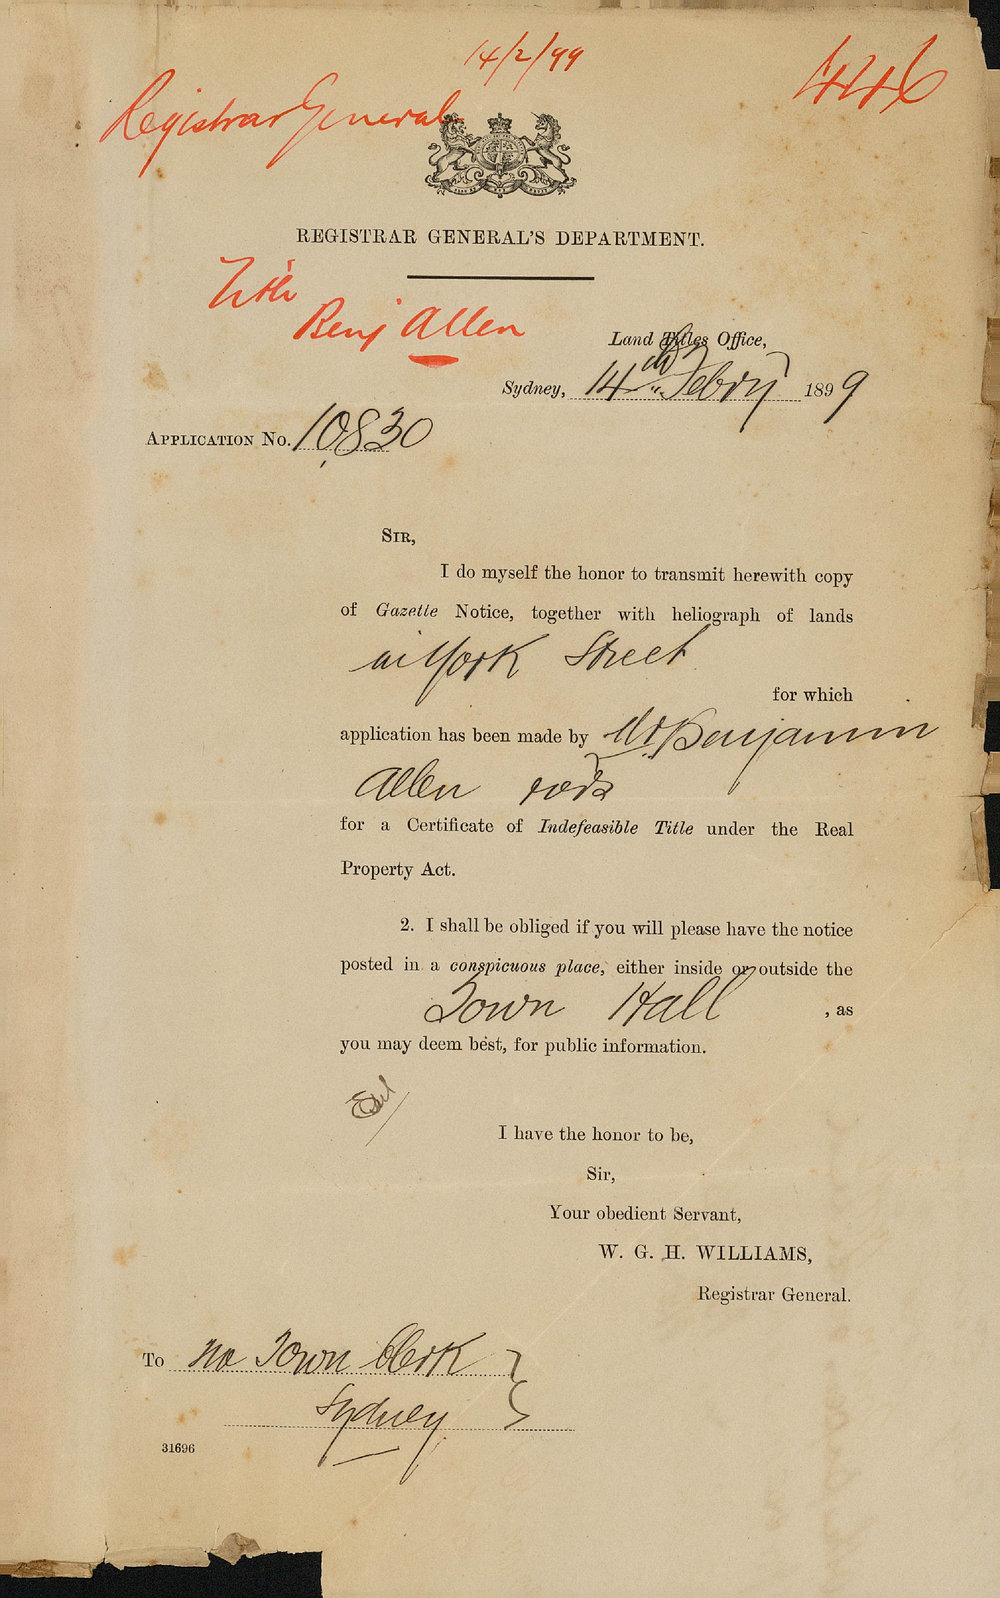 14/2/99
446
Registrar General
REGISTRAR GENERAL'S DEPARTMENT.
Title
Benj Allen
Land Titles Office,
Sydney, 14th Febry 1899
APPLICATION No. 10830
SIR,
I do myself the honor to transmit herewith copy
of Gazette Notice, together with heliograph of lands
in York Street
for which
application has been made by Mr Benjamin
Allen
for a Certificate of Indefeasible Title under the Real
Property Act.
2. I shall be obliged if you will please have the notice
posted in a conspicuous place, either inside or outside the
Town Hall , as
you may deem best, for public information.
I have the honor to be,
Sir,
Your obedient Servant,
W. G. H. WILLIAMS,
Registrar General.
To The Town Clerk
Sydney
31696